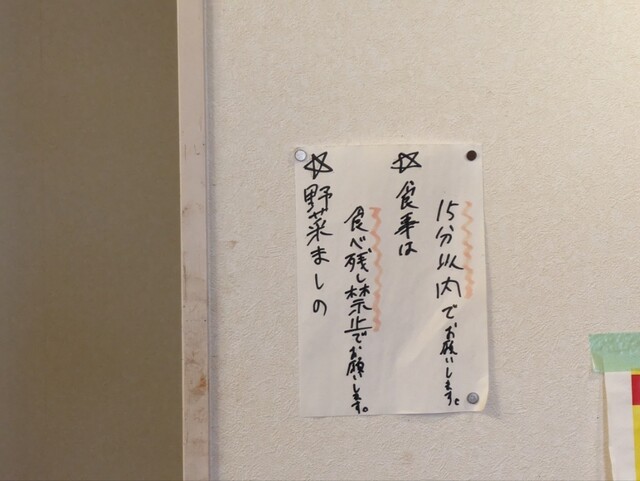 ☆野菜ましの
食べ残し禁止でお願いします。
☆食事は
15分以内でお願いします。